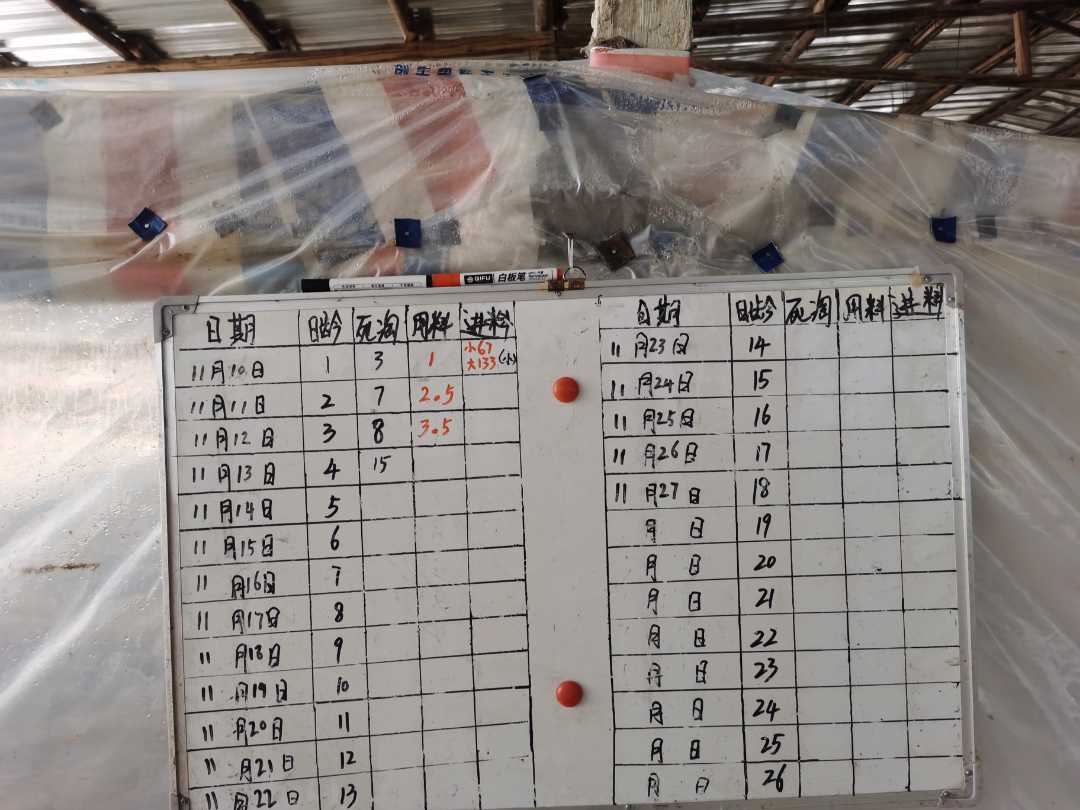 GIFU 白板笔
日期 日龄 死淘 用料 进料
11月10日 1 3 1 小67 大133(小)
11月11日 2 7 2.5
11月12日 3 8 3.5
11月13日 4 15
11月14日 5
11月15日 6
11月16日 7
11月17日 8
11月18日 9
11月19日 10
11月20日 11
11月21日 12
11月22日 13
日期 日龄 死淘 用料 进料
11月23日 14
11月24日 15
11月25日 16
11月26日 17
11月27日 18
月 日 19
月 日 20
月 日 21
月 日 22
月 日 23
月 日 24
月 日 25
月 日 26